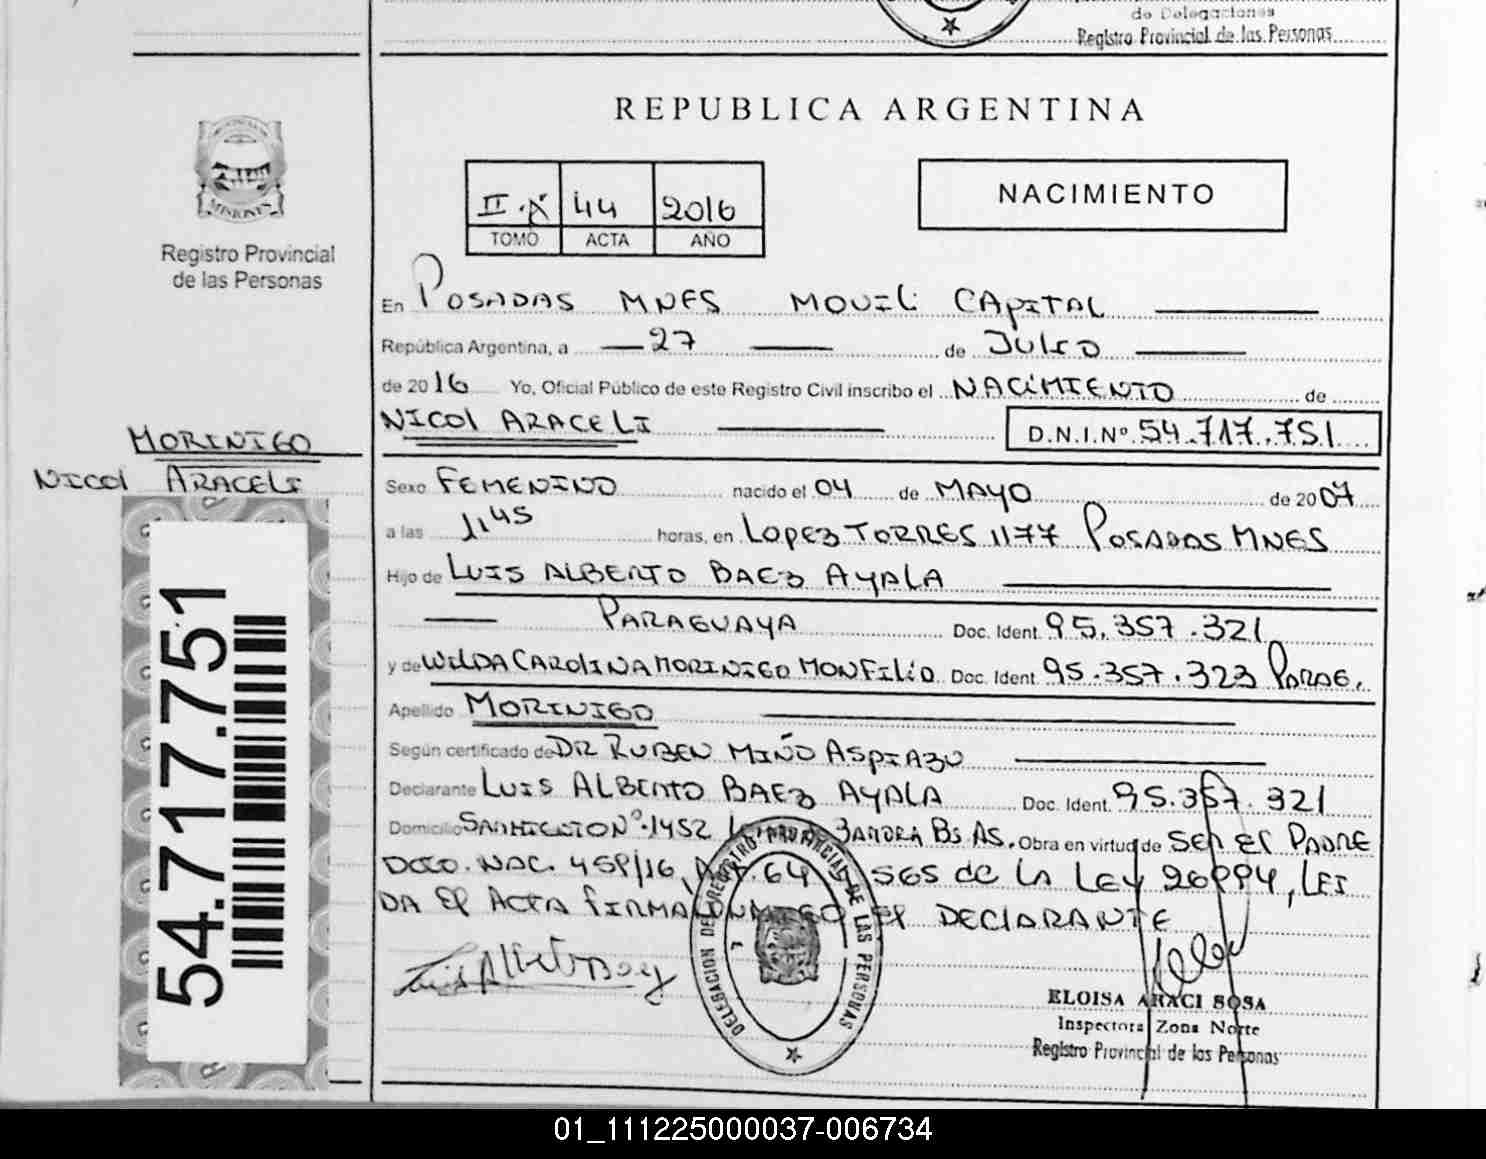 de Delegaciones
Registro Provincial de las Personas
REPUBLICA ARGENTINA
MISIONES
Registro Provincial
de las Personas
II 44 2016
TOMO ACTA AÑO
NACIMIENTO
En POSADAS MNES MOVIL CAPITAL
República Argentina, a 27 de JULIO
de 2016 Yo, Oficial Público de este Registro Civil inscribo el NACIMIENTO de
NICOL ARACELI D.N.I.Nº 54.717.751
MORINIGO
NICOL ARACELI
Sexo FEMENINO nacido el 04 de MAYO de 2007
a las 11,45 horas, en LOPEZ TORRES 1177 POSADAS MNES
Hijo de LUIS ALBERTO BAEZ AYALA
PARAGUAYA Doc. Ident. 95.357.321
y de WILDA CAROLINA MORINIGO MONFILIO Doc. Ident. 95.357.323 PARAG.
Apellido MORINIGO
Según certificado de DR RUBEN MIÑO ASPIAZU
Declarante LUIS ALBERTO BAEZ AYALA Doc. Ident. 95.357.321
Domicilio Nº 1452 BS AS. Obra en virtud de SER EL PADRE
DCTO. NAC. 459/16, 64 DE LA LEY 26994, LEI
DA EL ACTA FIRMA CONMIGO EL DECLARANTE
54.717.751
DELEGACION DEL REGISTRO PROVINCIAL DE LAS PERSONAS
ELOISA ARACI SOSA
Inspectora Zona Norte
Registro Provincial de las Personas
01_111225000037-006734